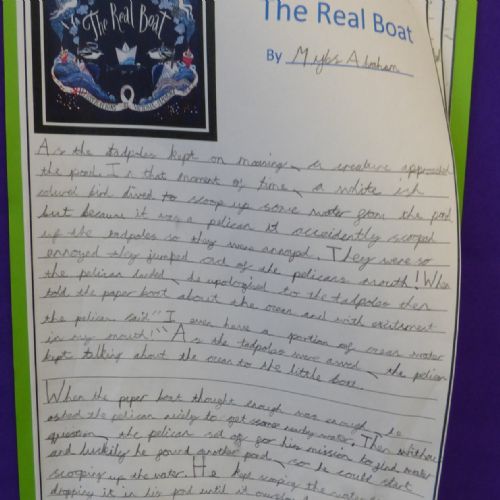 The Real Boat
The Real Boat
By Myles Abraham
As the tadpoles kept on moaning, a creature approached
the pond. In that moment of time, a white ish
coloured bird dived to scoop up some water from the pond
but because it was a pelican it accidently scooped
up the tadpoles so they were annoyed. They were so
annoyed they jumped out of the pelicans mouth! When
the pelican landed, he apologised to the tadpoles then
told the paper boat about the ocean and with excitment
the pelican said" I even have a portion of ocean water
in my mouth!" As the tadpoles were awed, the pelican
kept talking about the ocean to the little boat.
When the paper boat thought enough was enough, he
asked the pelican nicely to get some water. Then without
question, the pelican set of for his mission to find water
and luckily he found another pond, so he could start
scooping up the water. He kept scooping the water
dropping it in his pond until it